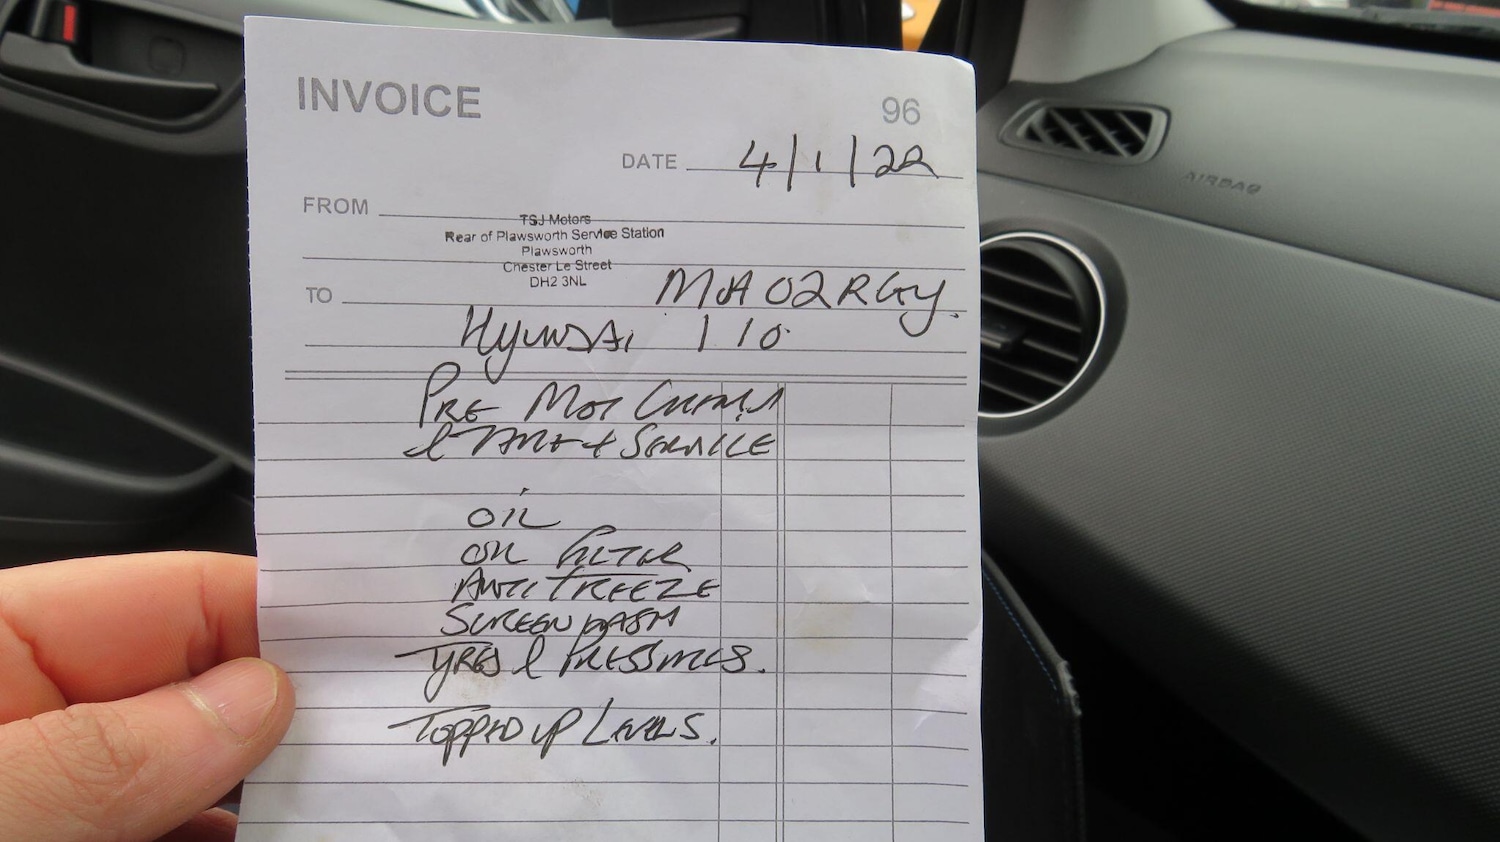 INVOICE
96
DATE 4/1/22
FROM
TSJ Motors
Rear of Plawsworth Service Station
Plawsworth
Chester Le Street
DH2 3NL
TO MA02RGY.
HYUNDAI I10
PRE MOT CHECK
& SERVICE
OIL
OIL FILTER
ANTI FREEZE
SCREEN WASH
TYRES & PRESSURES.
TOPPED UP LEVELS.
AIRBAG